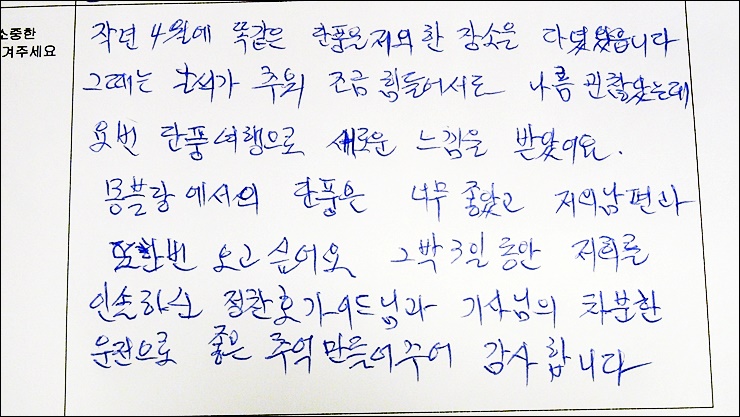 소중한
겨주세요
작년 4월에 똑같은 단풍을 제외한 장소을 다녔었읍니다
그때는 날씨가 추워 조금 힘들어서도 나름 괜찮았는데
요번 단풍여행으로 새로운 느낌을 받았어요.
몽블랑에서의 단풍은 너무 좋았고 저의남편과
또한번 오고 싶어요 2박3일동안 저희를
인솔하신 정찬호가이드님과 기사님의 차분한
운전으로 좋은 추억만들어주어 감사합니다